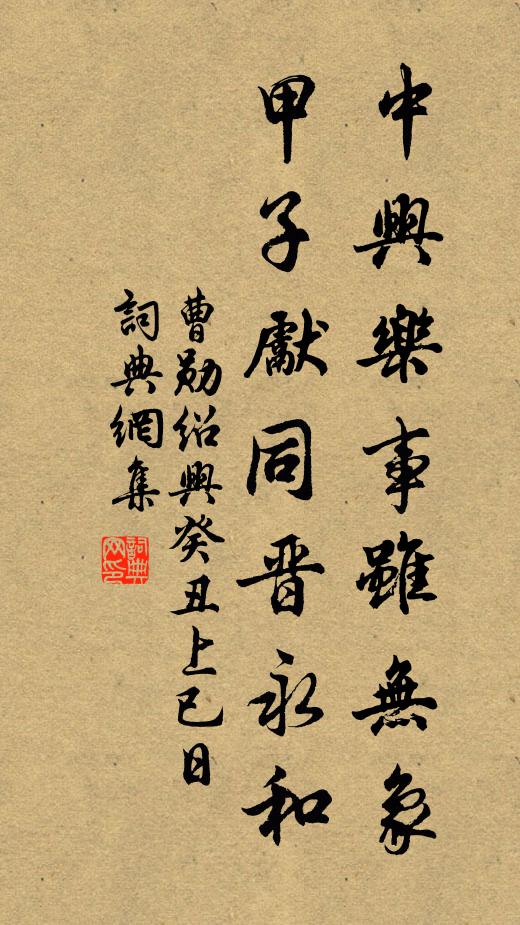 中興樂事雖無象
甲子獻同晋永和
曹勛绍興癸丑上已日
詞典網集
詞典網印